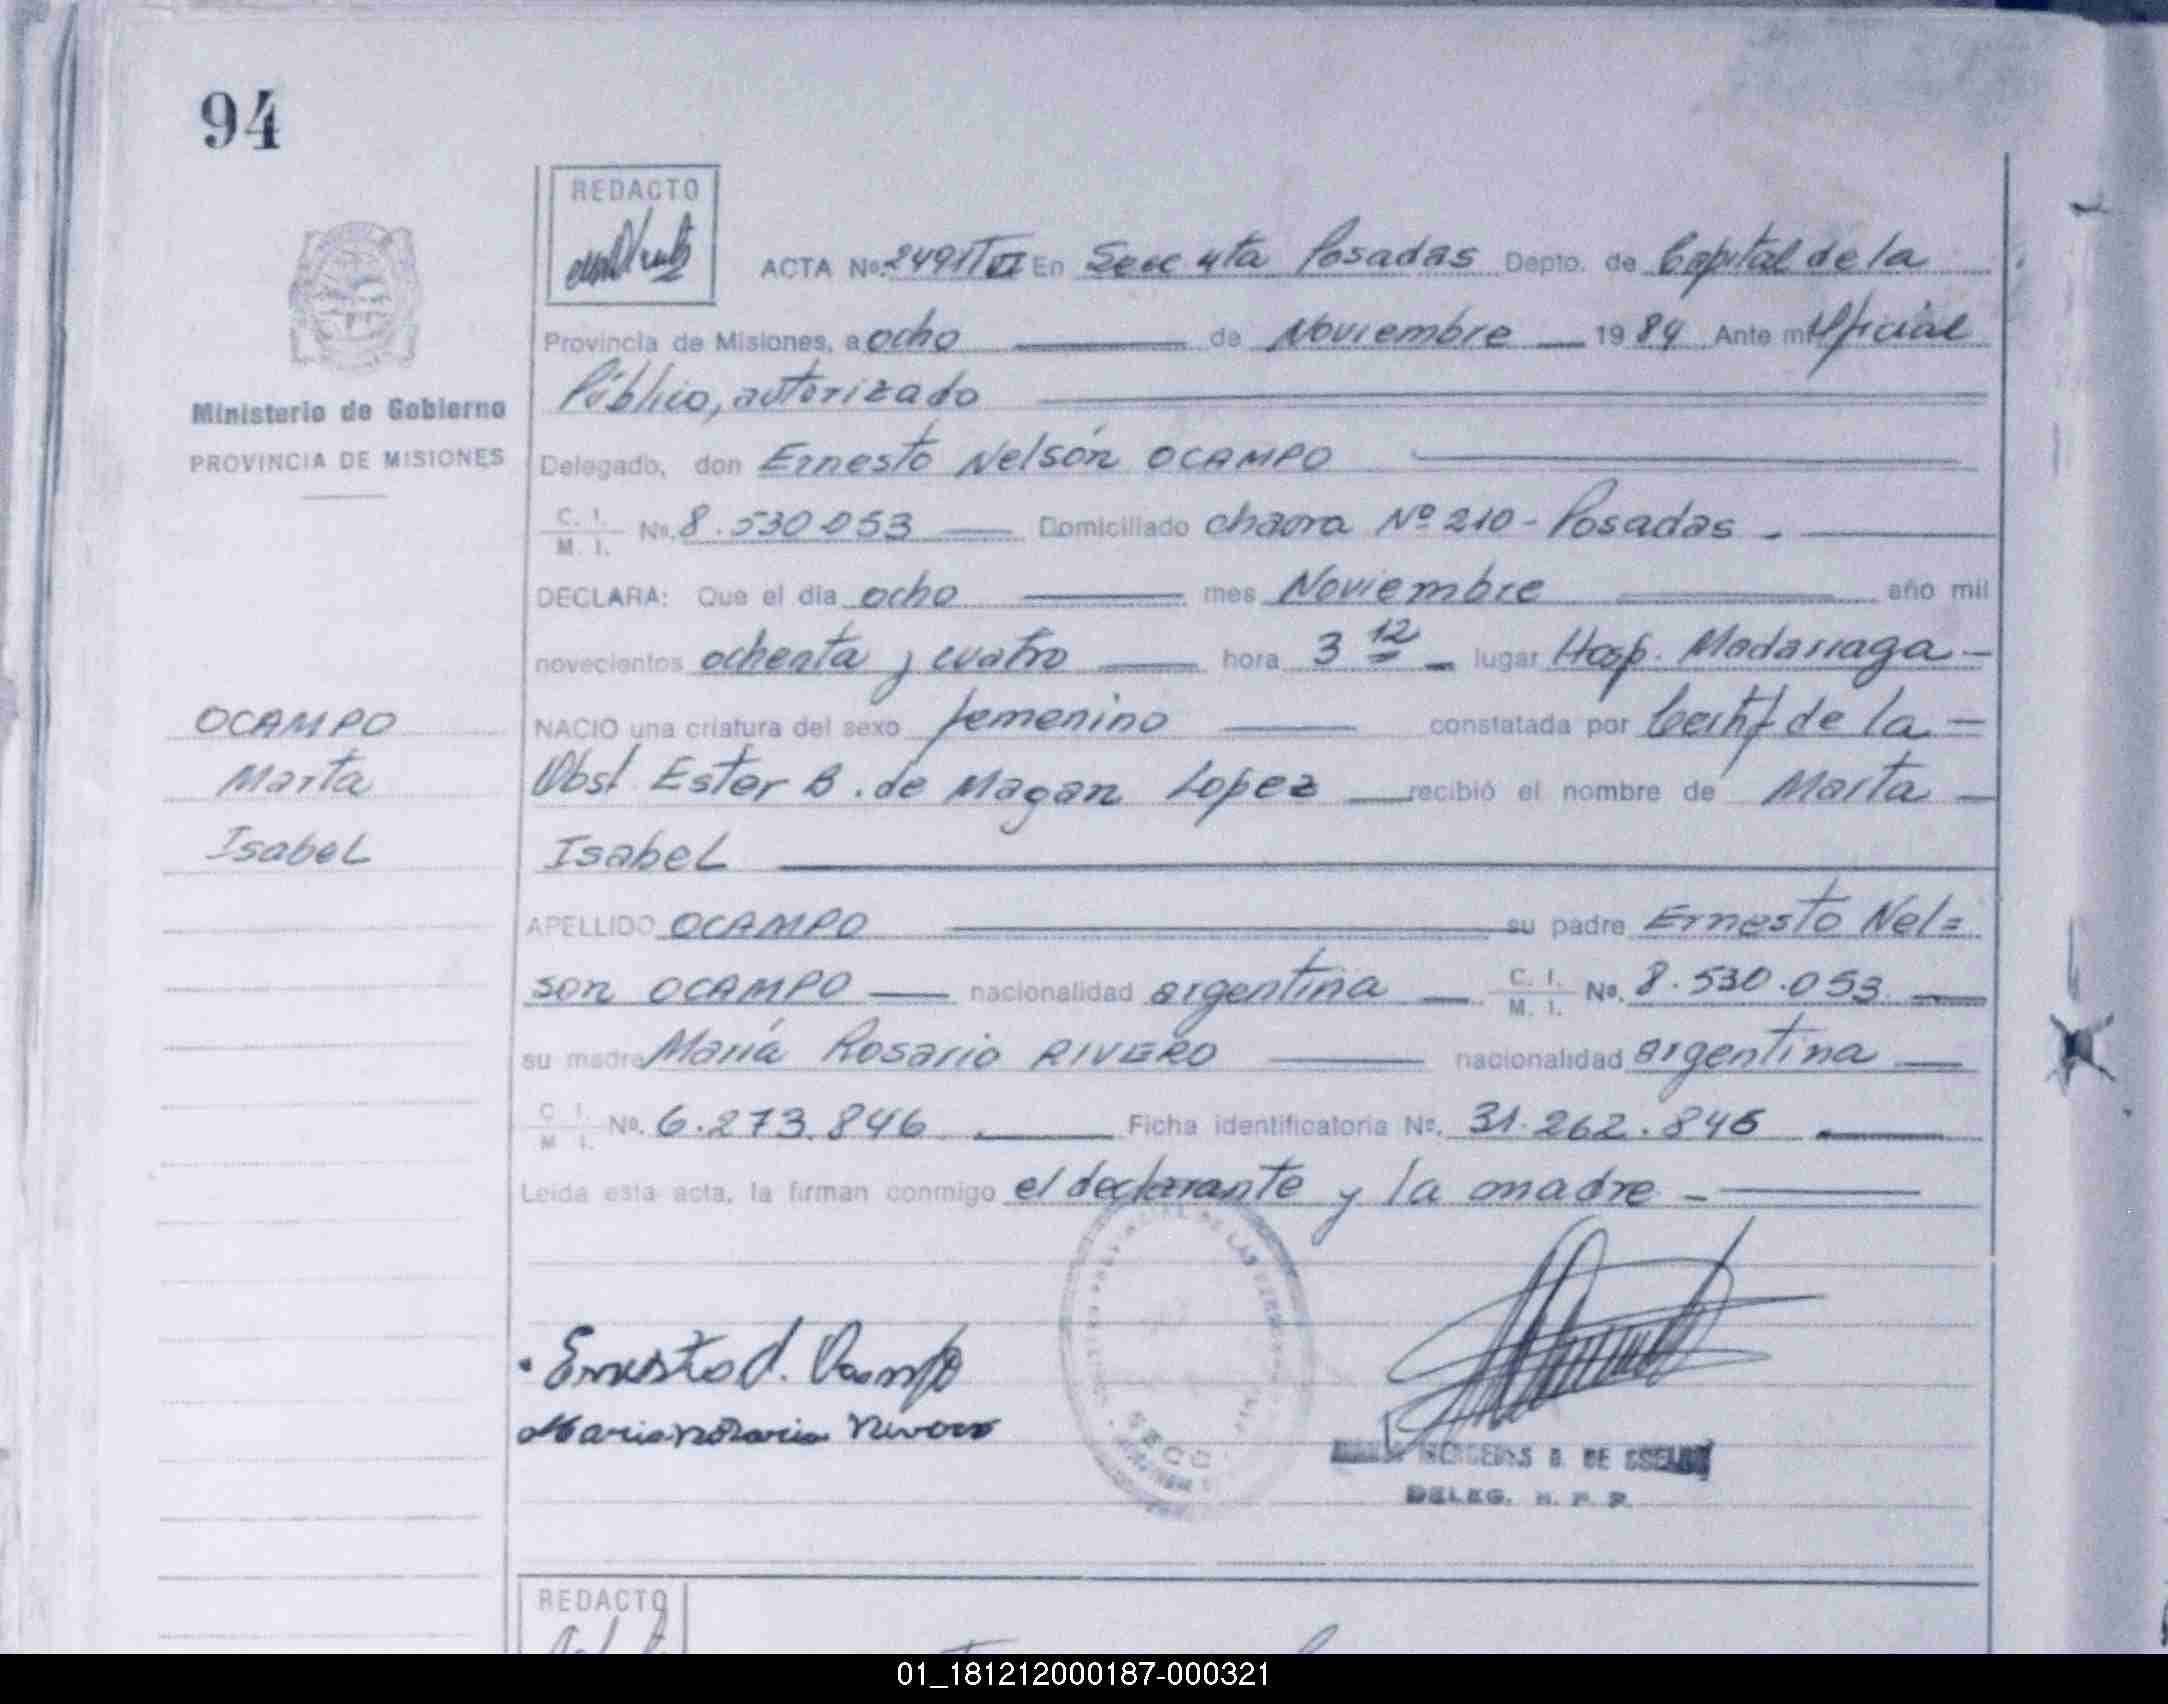 94
REDACTO
ACTA No. 2491 T VI En Secc 4ta Posadas Depto. de Capital de la
Provincia de Misiones, a ocho de Noviembre 1984 Ante mi Oficial
Público, autorizado
Ministerio de Gobierno
PROVINCIA DE MISIONES
Delegado, don Ernesto Nelsón OCAMPO
C. I.
M. I. No. 8.530.053 Domiciliado chacra Nº 210 - Posadas -
DECLARA: Que el dia ocho mes Noviembre año mil
novecientos ochenta y cuatro hora 3 12 lugar Hosp. Madariaga -
OCAMPO
Marta
Isabel
NACIO una criatura del sexo femenino constatada por Certif de la =
Obst. Ester B. de Magan Lopez recibió el nombre de Marta
Isabel
APELLIDO OCAMPO su padre Ernesto Nel=
son OCAMPO nacionalidad argentina C. I. M. I. No. 8.530.053
su madre María Rosario RIVERO nacionalidad argentina
C I. M I. No. 6.273.846 Ficha identificatoria No. 31.262.846
Leida esta acta, la firman conmigo el declarante y la madre -
Ernesto N. Ocampo
Maria Rosario Rivero
SECC
B. DE
DELEG. R. P. P.
REDACTO
01_181212000187-000321